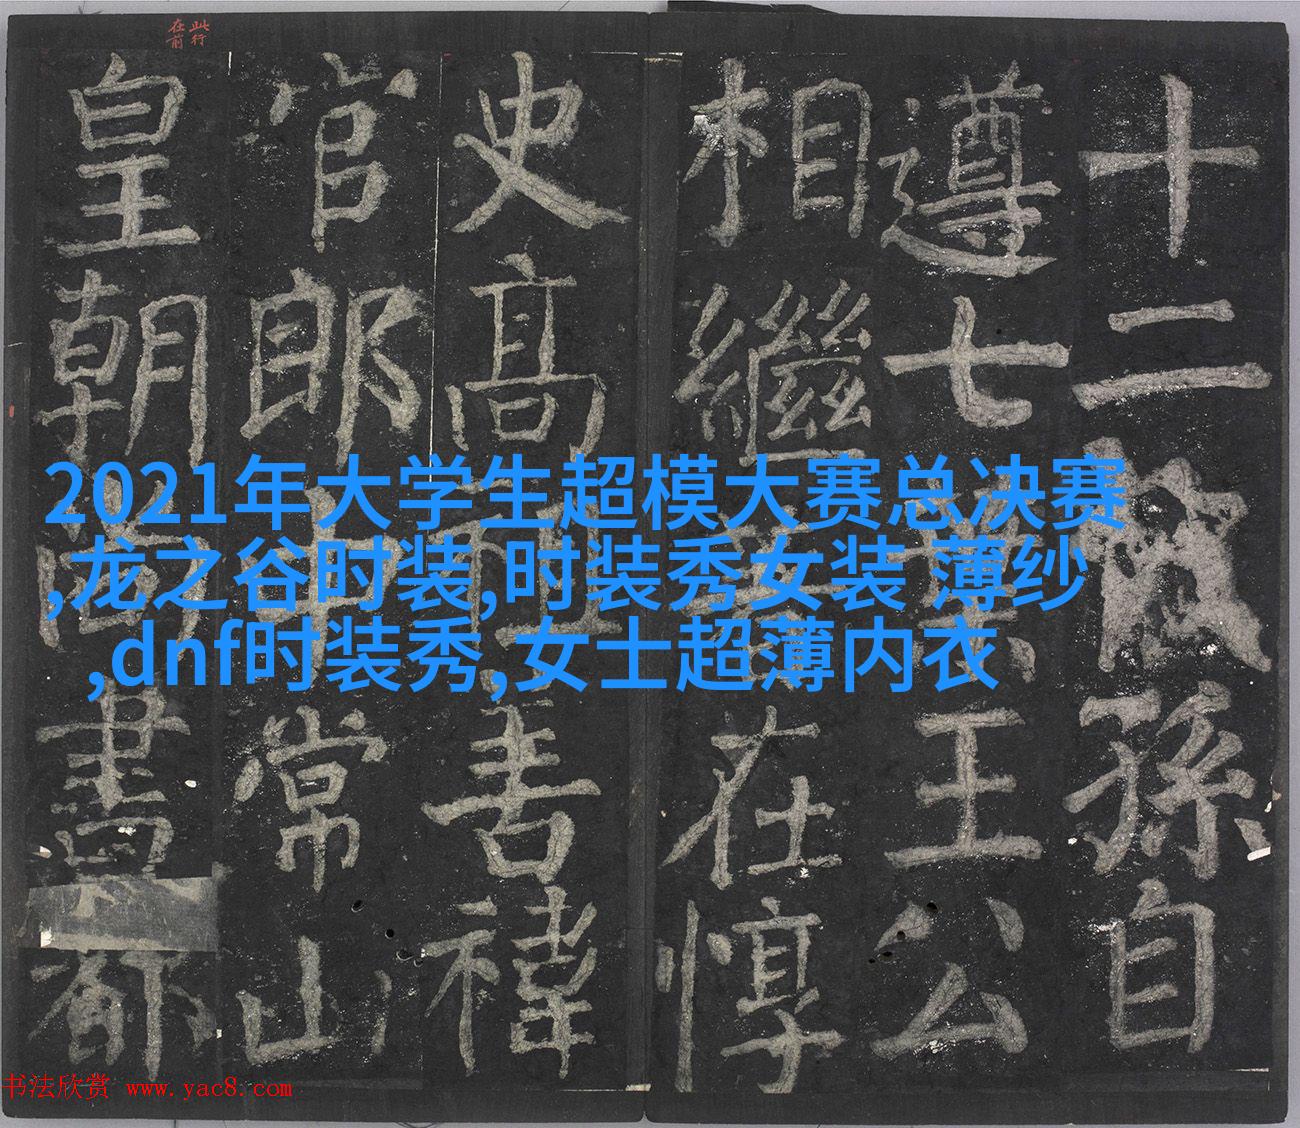 此行
在前
十二孫自
遵七葉王公
相繼在惇
史高祖善禕
官郎中常山
皇朝尚書都
2021年大学生超模大赛总决赛
,龙之谷时装,时装秀女装 薄纱
,dnf时装秀,女士超薄内衣
书法欣赏 www.yac8.com